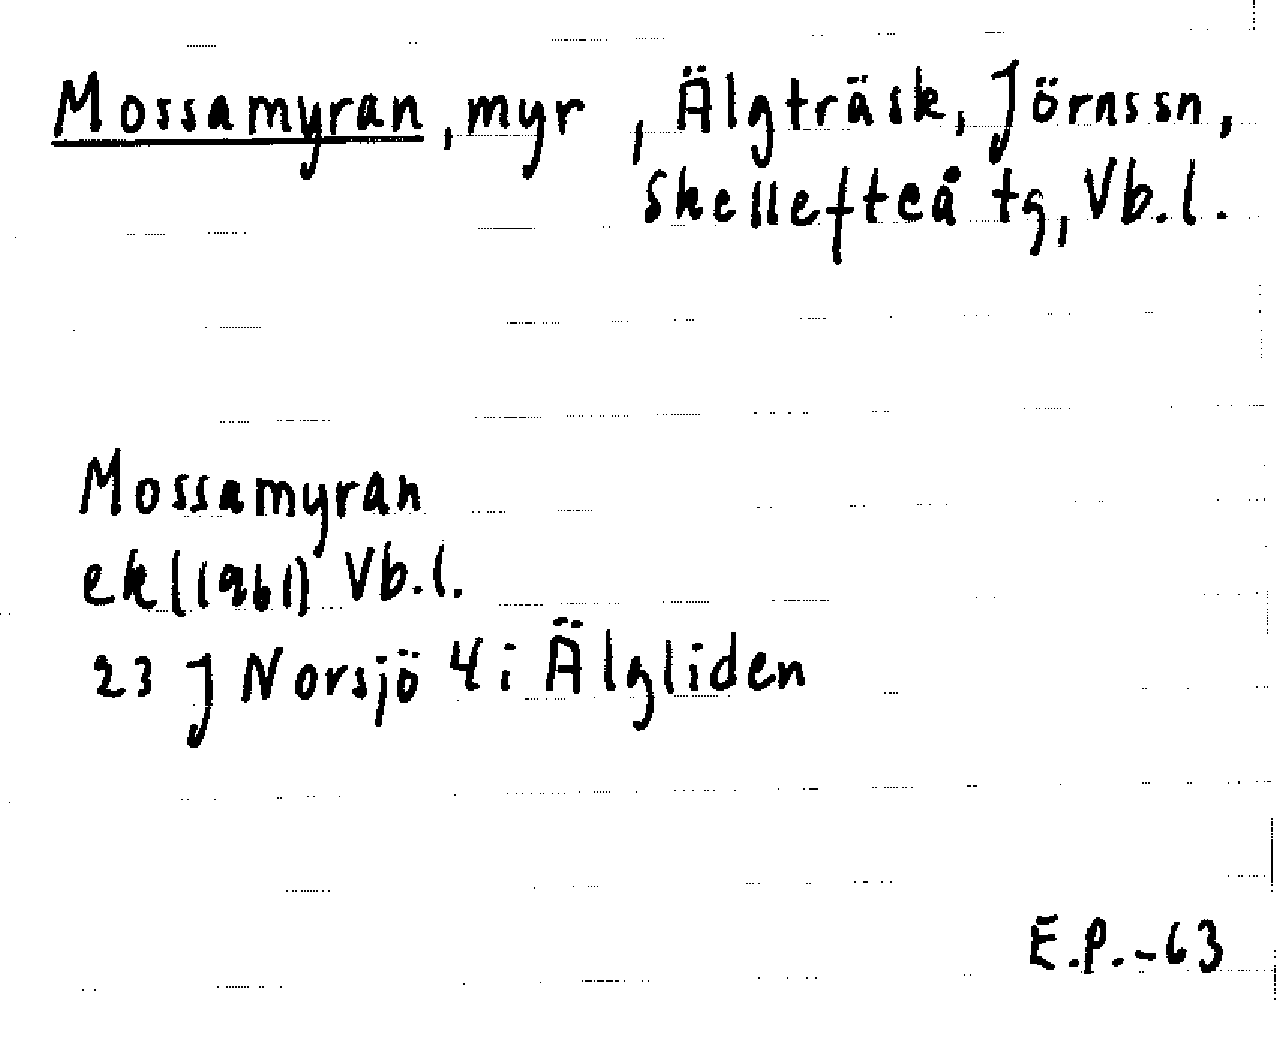 Mossamyran, myr, Älgträsk, Jörnssn,
Skellefteå tg, Vb.l.
Mossamyran
ek (1961) Vb.l.
23 J Norsjö 4 i Älgliden
E.P.-63